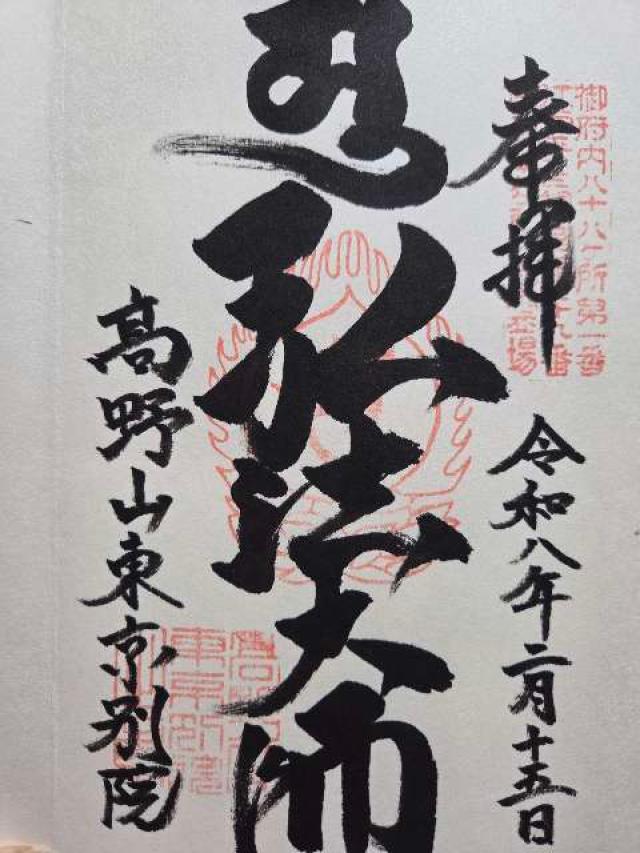 奉拝
御府内八十八ヶ所第一番
令和八年二月十五日
弘法大師
高野山東京別院